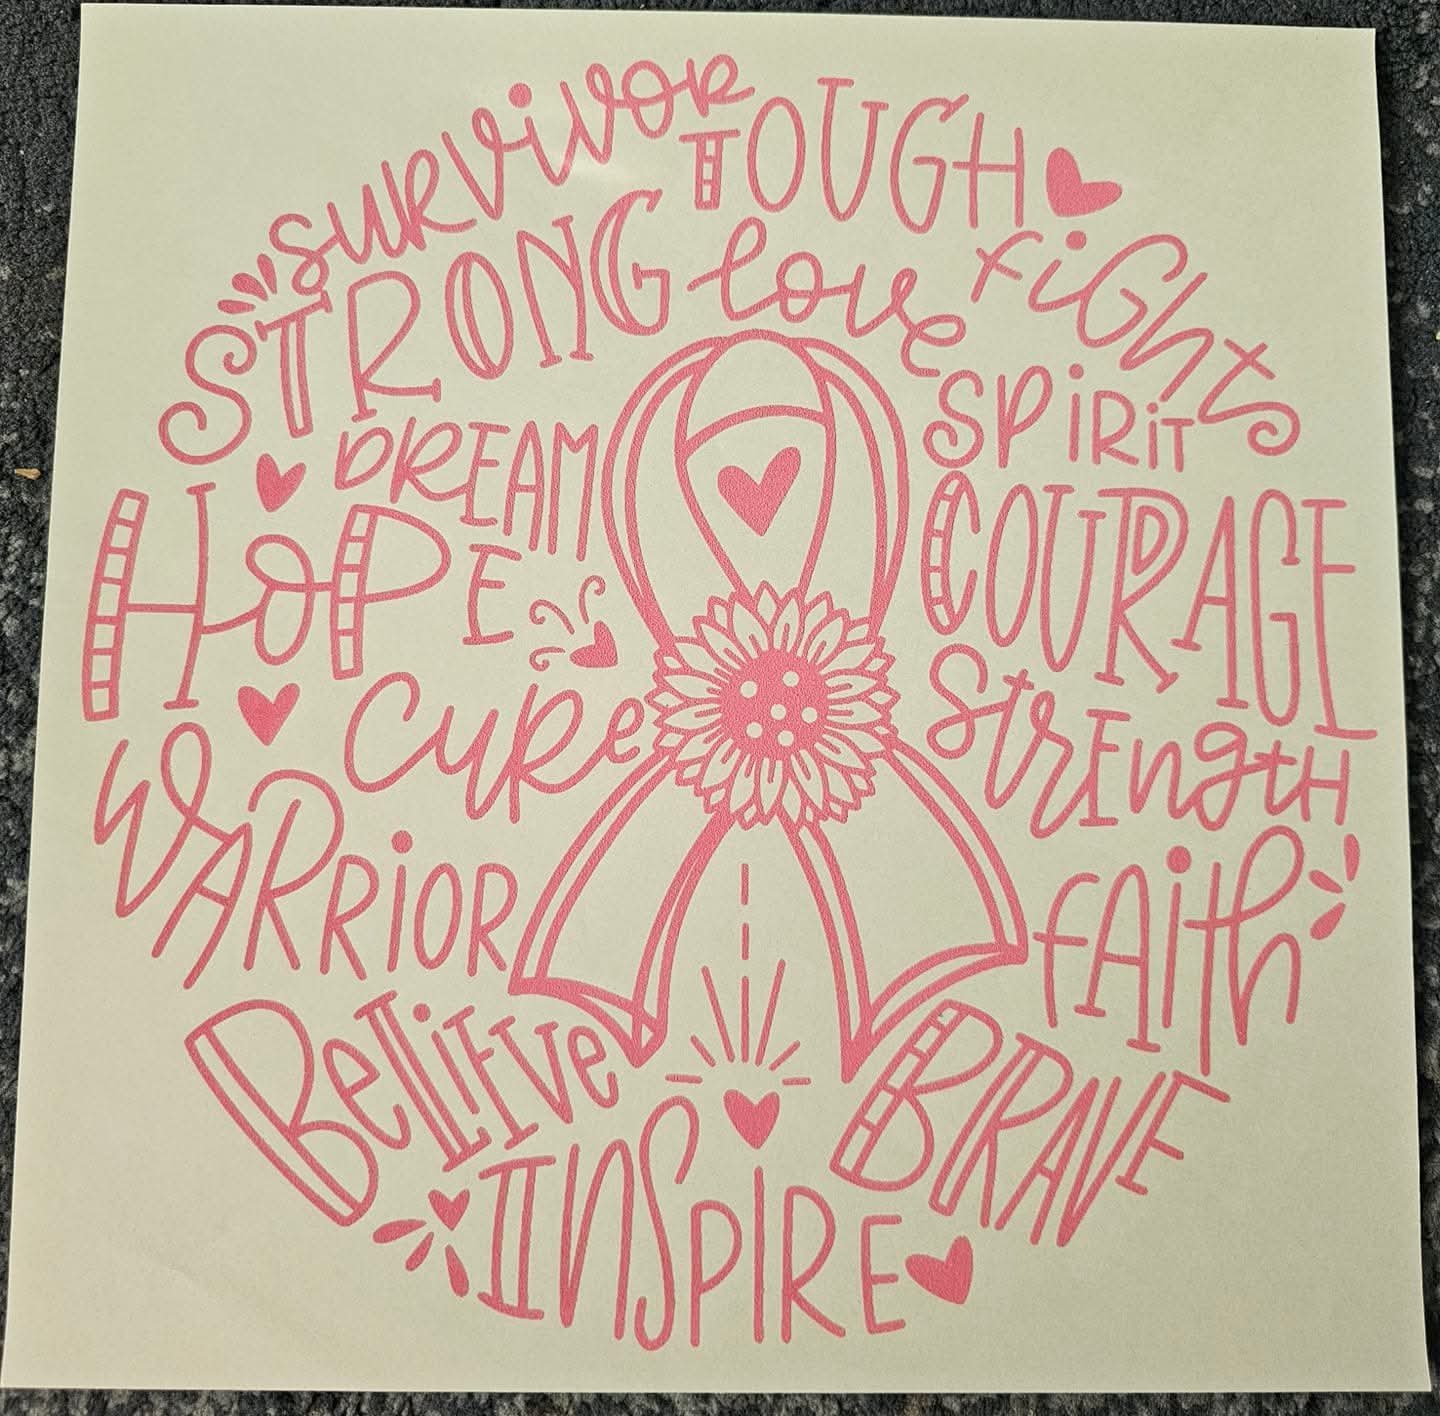 SURVIVOR
TOUGH
STRONG
love
FiGhts
SPiRiT
DREAM
HoPE
COURAGE
CURe
StrEngtH
WARRiOR
fAith
BeLiEVe
BRAVE
INSPIRE